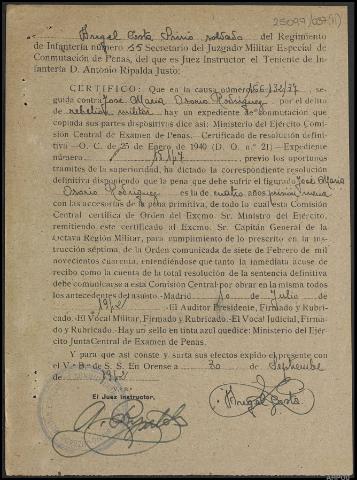 25097/057(11)
Angel Costa Prino soldado del Regimiento
de Infantería número 55 Secretario del Juzgado Militar Especial de
Conmutación de Penas, del que es Juez Instructor el Teniente de In-
fantería D. Antonio Ripalda Justo:
CERTIFICO: Que en la causa número 166/32/37, se-
guida contra José María Osorio Rodríguez por el delito
de rebelión militar hay un expediente de conmutación que
copiada sus partes dispositivas dice así: Ministerio del Ejército Comi-
sión Central de Examen de Penas.-Certificado de resolución defini-
tiva -O. C. de 25 de Enero de 1940 (D. O. n.º 21)-Expediente
número previo los oportunos
tramites de la superioridad, ha dictado la correspondiente resolución
definitiva disponiendo que la pena que debe sufrir el figurado José María
Osorio Rodríguez es la de cuatro años prisión menor
con las accesorias de la pena primitiva, de todo la cual esta Comisión
Central certifica de Orden del Excmo. Sr. Ministro del Ejército,
remitiendo este certificado al Excmo. Sr. Capitán General de la
Octava Región Militar, para cumplimiento de lo prescrito en la ins-
trucción séptima, de la Orden comunicada de siete de Febrero de mil
novecientos cuarenta, entendiéndose que tanto la inmediata acuse de
recibo como la cuenta de la total resolución de la sentencia definitiva
debe comunicarse a esta Comisión Central por obrar en la misma todos
los antecedentes del asunto.-Madrid 10 de Julio de
1942 -El Auditor Presidente, Firmado y Rubri-
cado.-El Vocal Militar, Firmado y Rubricado.-El Vocal Judicial, Firma-
do y Rubricado.-Hay un sello en tinta azul que dice: Ministerio del Ejér-
cito Junta Central de Examen de Penas.
Y para que así conste y surta sus efectos expido el presente con
el V.º B.º de S. S. En Orense a 30 de Septiembre
de 1942
V.º B.º
El Juez Instructor,
A. Ripalda
Angel Costa
AHPOU